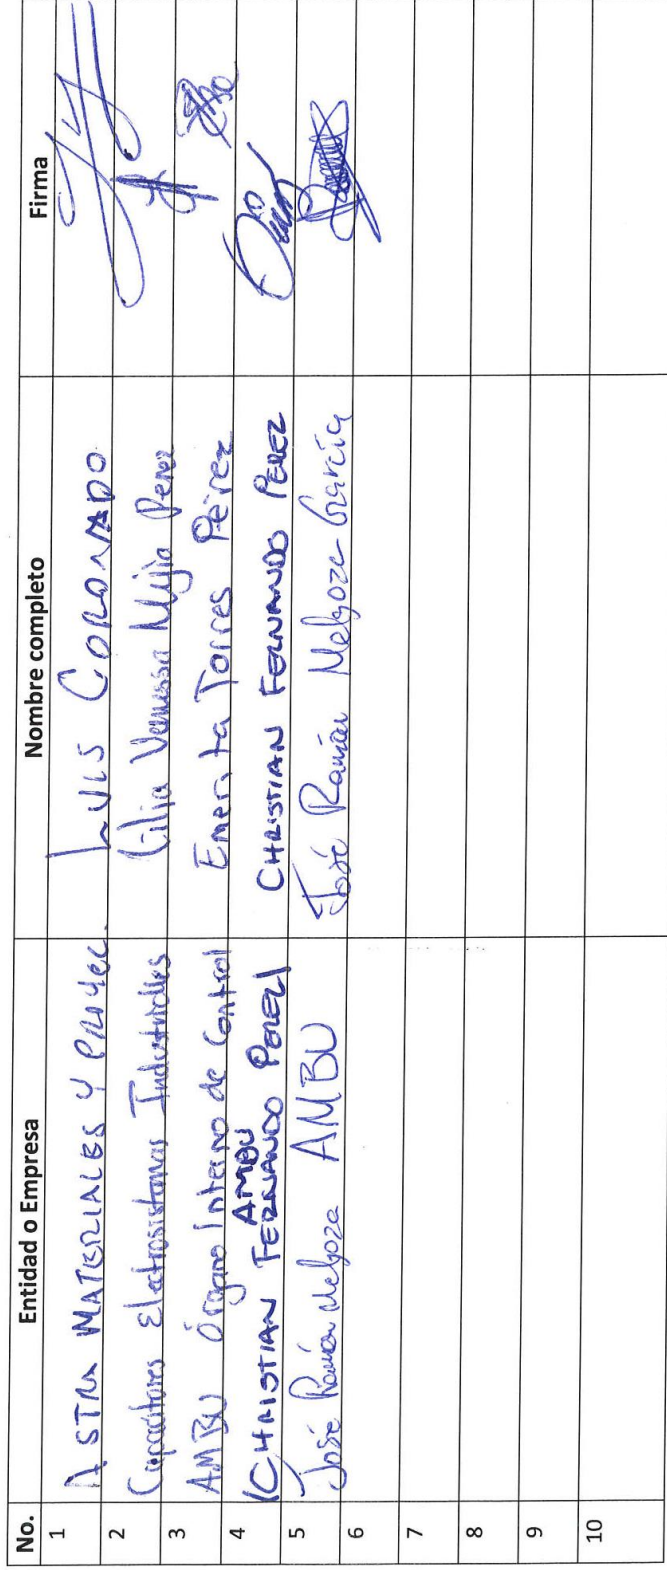 No. Entidad o Empresa Nombre completo Firma
1 ASTRA MATERIALES Y PROYEC. LUIS CORONADO
2 Capacitores Electrosistemas Industriales Cilia Vanessa Mejia Perez
3 AMBU Órgano Interno de Control Emerita Torres Pérez
4 AMBU (CHRISTIAN FERNANDO PEREZ) CHRISTIAN FERNANDO PEREZ
5 José Ramón Melgoza AMBU José Ramón Melgoza García
6
7
8
9
10